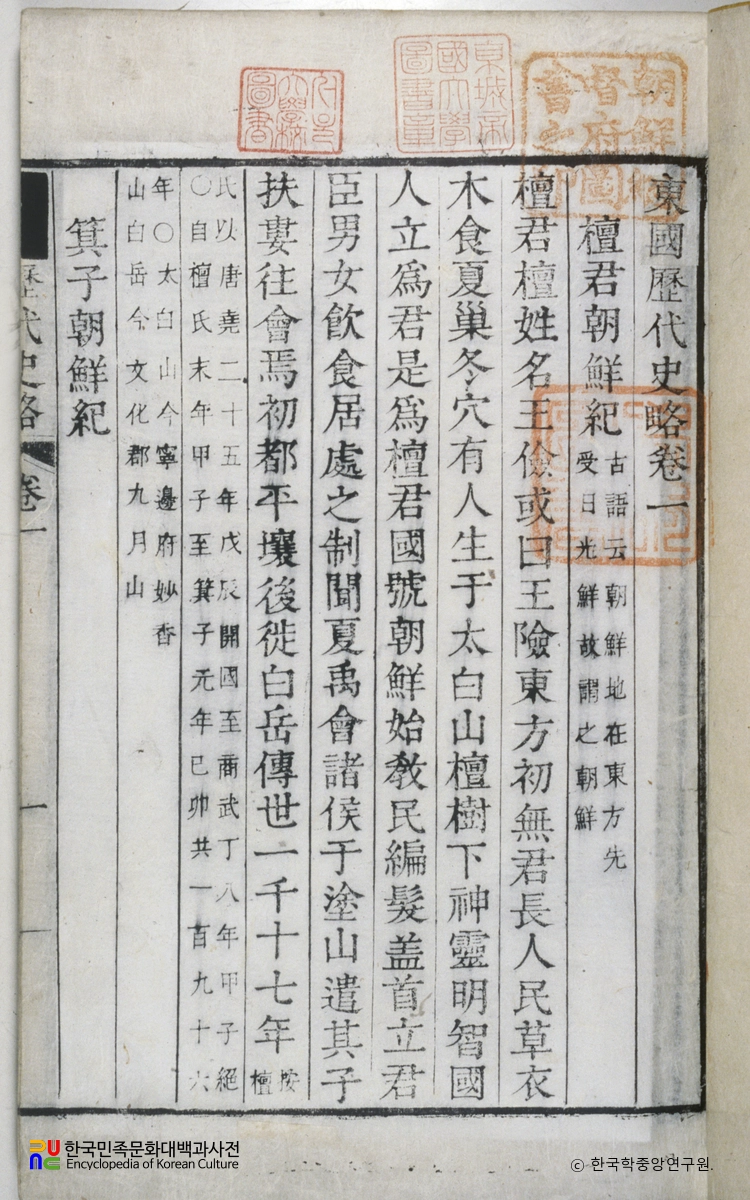 東國歷代史略卷一
檀君朝鮮紀
古語云朝鮮地在東方先
受日光鮮故謂之朝鮮
檀君檀姓名王儉或曰王險東方初無君長人民草衣
木食夏巢冬穴有人生于太白山檀樹下神靈明智國
人立爲君是爲檀君國號朝鮮始敎民編髮盖首立君
臣男女飮食居處之制聞夏禹會諸侯于塗山遣其子
扶婁往會焉初都平壤後徙白岳傳世一千十七年
按
檀
氏以唐堯二十五年戊辰開國至商武丁八年甲子絕
〇自檀氏末年甲子至箕子元年己卯共一百九十六
年〇太白山今寧邊府妙香
山白岳今文化郡九月山
箕子朝鮮紀
歷代史略
卷一
一
朝鮮總
督府圖
書之印
東城帝
國大學
圖書章
大學校
圖書
한국민족문화대백과사전
Encyclopedia of Korean Culture
ⓒ 한국학중앙연구원.